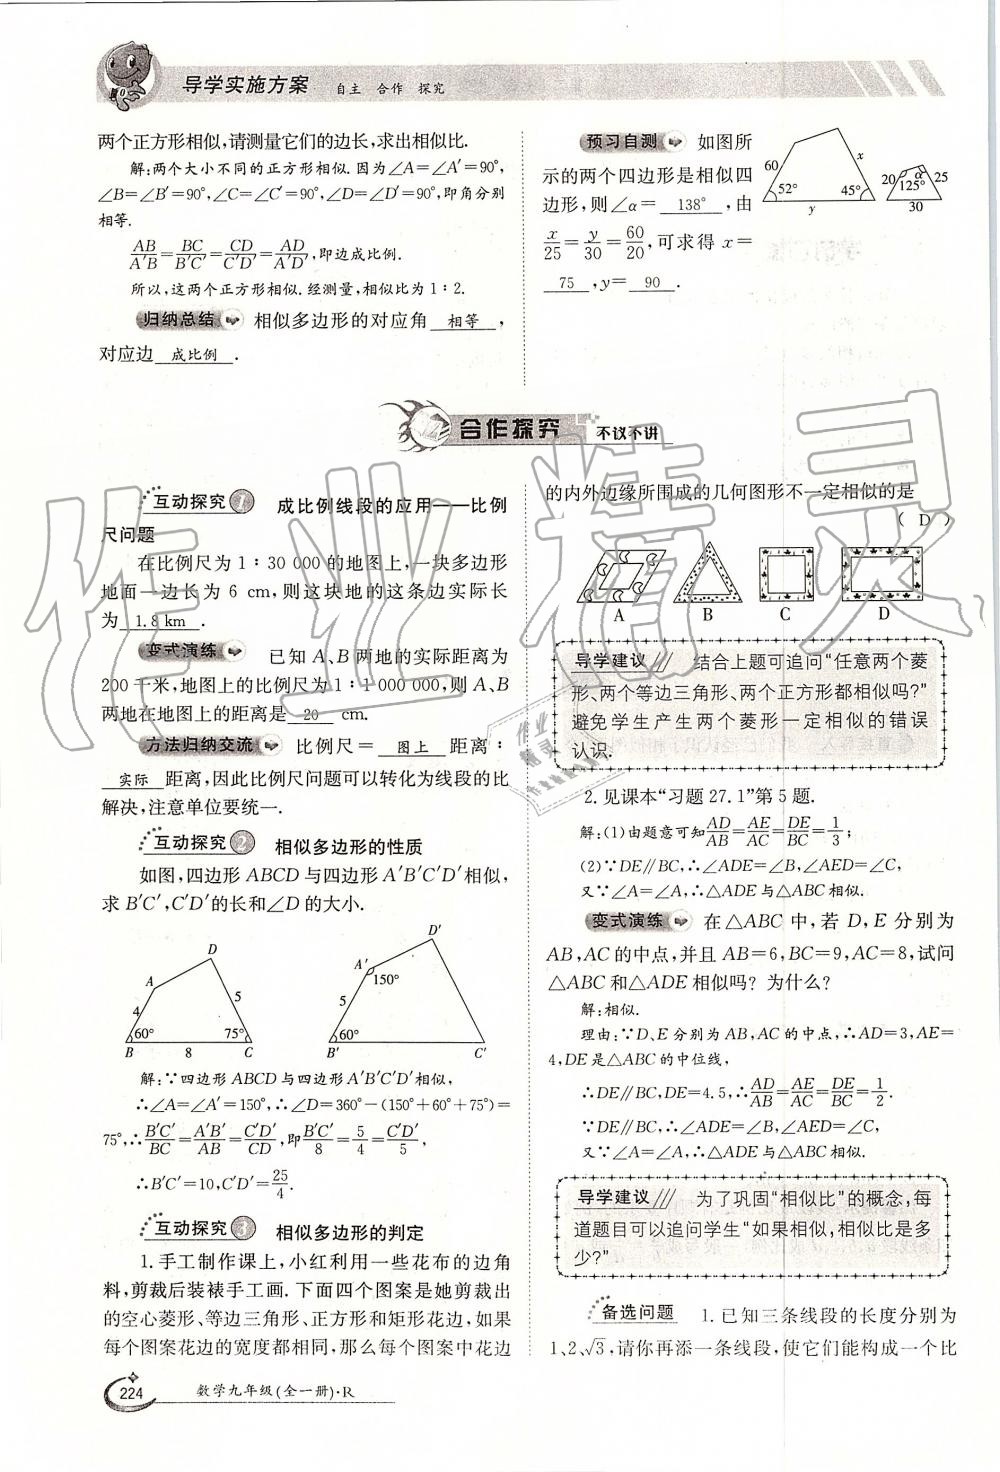 导学实施方案 自主 合作 探究
两个正方形相似,请测量它们的边长,求出相似比.
解:两个大小不同的正方形相似.因为∠A=∠A′=90°,
∠B=∠B′=90°,∠C=∠C′=90°,∠D=∠D′=90°,即角分别
相等.
AB/A′B′=BC/B′C′=CD/C′D′=AD/A′D′,即边成比例.
所以,这两个正方形相似.经测量,相似比为1∶2.
归纳总结 相似多边形的对应角 相等 ,
对应边 成比例 .
预习自测 如图所
示的两个四边形是相似四
边形,则∠α= 138° ,由
x/25=y/30=60/20,可求得 x=
75 ,y= 90 .
60 x 52° 45° y
20 α 125° 25 30
合作探究 不议不讲
互动探究1 成比例线段的应用——比例
尺问题
在比例尺为1∶30 000的地图上,一块多边形
地面一边长为 6 cm,则这块地的这条边实际长
为 1.8 km .
变式演练 已知A、B两地的实际距离为
200千米,地图上的比例尺为1∶1 000 000,则A、B
两地在地图上的距离是 20 cm.
方法归纳交流 比例尺= 图上 距离∶
实际 距离,因此比例尺问题可以转化为线段的比
解决,注意单位要统一.
互动探究2 相似多边形的性质
如图,四边形ABCD与四边形A′B′C′D′相似,
求B′C′,C′D′的长和∠D的大小.
A D 4 5 60° 75° B 8 C
A′ D′ 150° 5 60° B′ C′
解:∵四边形ABCD与四边形A′B′C′D′相似,
∴∠A=∠A′=150°,∴∠D=360°-(150°+60°+75°)=
75°,∴B′C′/BC=A′B′/AB=C′D′/CD,即B′C′/8=5/4=C′D′/5,
∴B′C′=10,C′D′=25/4.
互动探究3 相似多边形的判定
1.手工制作课上,小红利用一些花布的边角
料,剪裁后装裱手工画.下面四个图案是她剪裁出
的空心菱形、等边三角形、正方形和矩形花边,如果
每个图案花边的宽度都相同,那么每个图案中花边
的内外边缘所围成的几何图形不一定相似的是
( D )
A B C D
导学建议 结合上题可追问“任意两个菱
形、两个等边三角形、两个正方形都相似吗?”
避免学生产生两个菱形一定相似的错误
认识.
2.见课本“习题27.1”第5题.
解:(1)由题意可知AD/AB=AE/AC=DE/BC=1/3;
(2)∵DE∥BC,∴∠ADE=∠B,∠AED=∠C,
又∵∠A=∠A,∴△ADE与△ABC相似.
变式演练 在△ABC中,若D,E分别为
AB,AC的中点,并且AB=6,BC=9,AC=8,试问
△ABC和△ADE相似吗?为什么?
解:相似.
理由:∵D、E分别为AB,AC的中点,∴AD=3,AE=
4,DE是△ABC的中位线,
∴DE∥BC,DE=4.5,∴AD/AB=AE/AC=DE/BC=1/2.
∵DE∥BC,∴∠ADE=∠B,∠AED=∠C,
又∵∠A=∠A,∴△ADE与△ABC相似.
导学建议 为了巩固“相似比”的概念,每
道题目可以追问学生“如果相似,相似比是多
少?”
备选问题 1.已知三条线段的长度分别为
1、2、√3,请你再添一条线段,使它们能构成一个比
224 数学九年级(全一册)·R
作业精灵
作业精灵